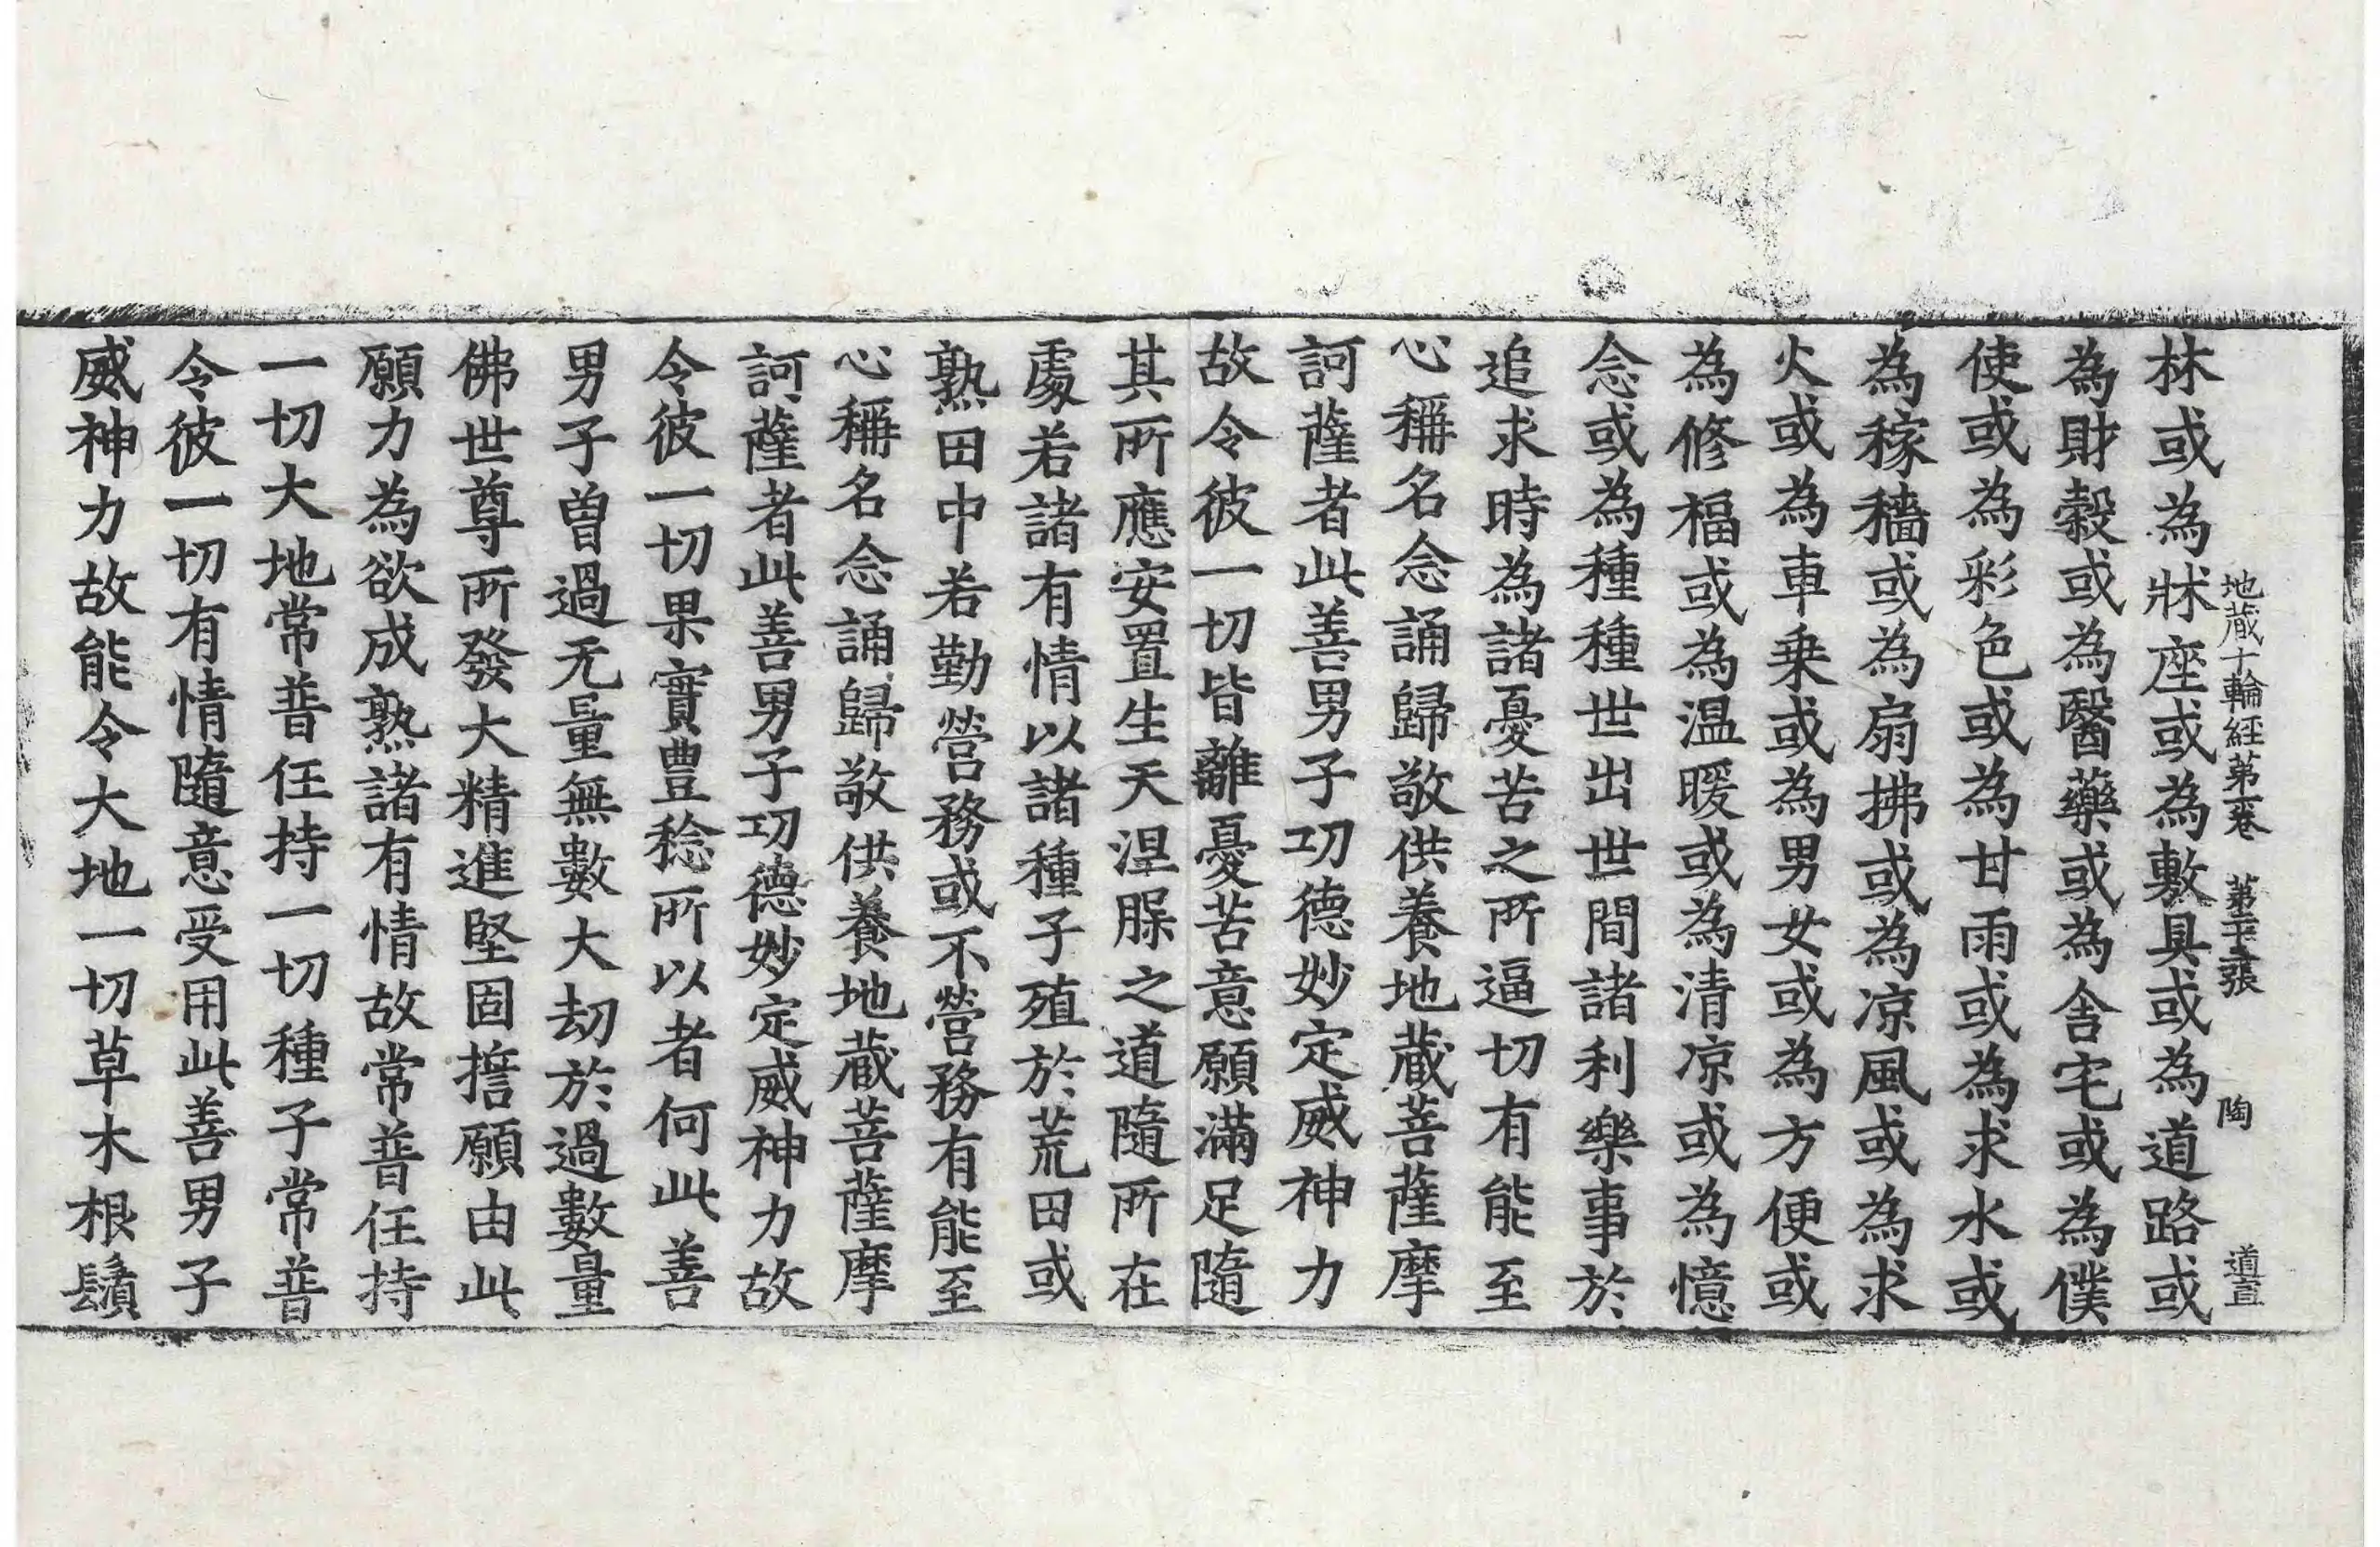 地蔵十輪經苐一卷 苐二十三張 陶 道置
林或為牀座或為敷具或為道路或
為財穀或為醫藥或為舍宅或為僕
使或為彩色或為甘雨或為求水或
為稼穡或為扇拂或為凉風或為求
火或為車乗或為男女或為方便或
為修福或為温暖或為清凉或為憶
念或為種種世出世間諸利樂事於
追求時為諸憂苦之所逼切有能至
心稱名念誦歸敬供養地蔵菩薩摩
訶薩者此善男子功德妙定威神力
故令彼一切皆離憂苦意願滿足隨
其所應安置生天涅槃之道隨所在
處若諸有情以諸種子殖於荒田或
熟田中若勤營務或不營務有能至
心稱名念誦歸敬供養地蔵菩薩摩
訶薩者此善男子功德妙定威神力故
令彼一切果實豊稔所以者何此善
男子曽過无量無數大劫於過數量
佛世尊所發大精進堅固誓願由此
願力為欲成熟諸有情故常普任持
一切大地常普任持一切種子常普
令彼一切有情隨意受用此善男子
威神力故能令大地一切草木根鬚